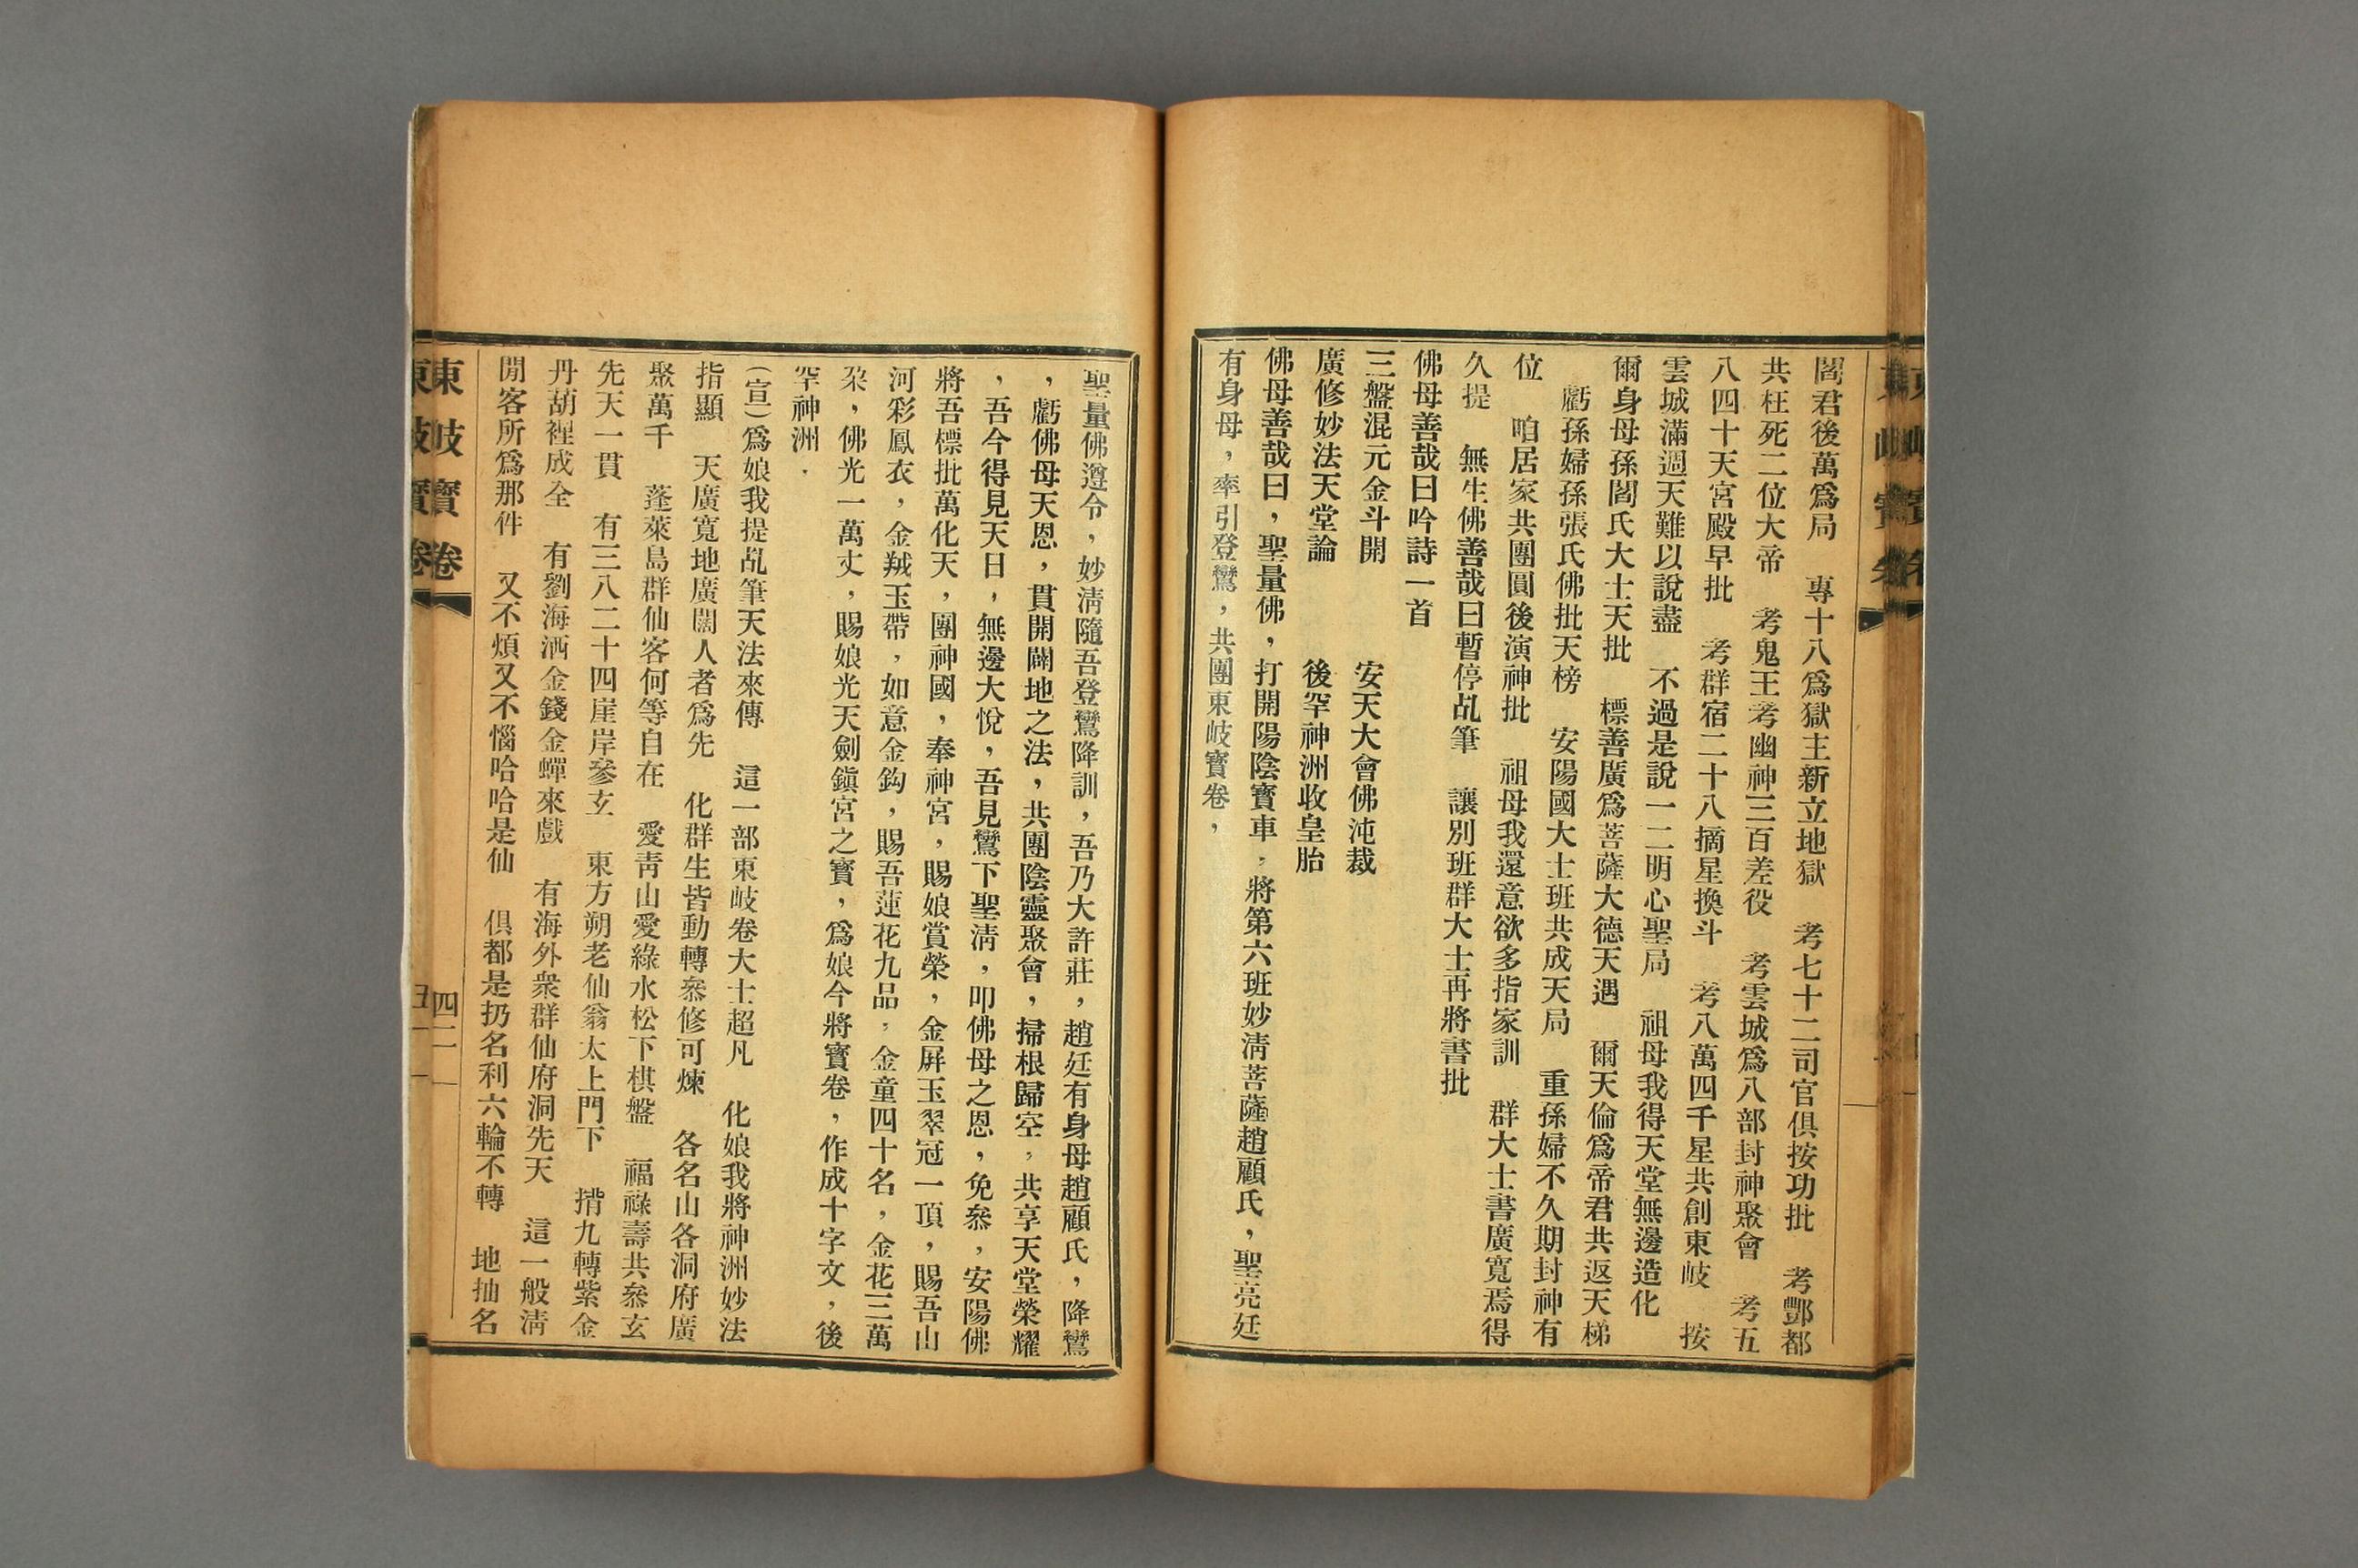 閻君後萬爲局　專十八爲獄主新立地獄　考七十二司官俱按功批　考酆都
共枉死二位大帝　考鬼王考幽神三百差役　考雲城爲八部封神聚會　考五
八四十天宮殿早批　考群宿二十八摘星換斗　考八萬四千星共創東岐　按
雲城滿週天難以說盡　不過是說一二明心聖局　祖母我得天堂無邊造化
爾身母孫閻氏大士天批　標善廣爲菩薩大德天遇　爾天倫爲帝君共返天梯
虧孫婦孫張氏佛批天榜　安陽國大士班共成天局　重孫婦不久期封神有
位　咱居家共團圓後演神批　祖母我還意欲多指家訓　群大士書廣寬焉得
久提　無生佛善哉曰暫停乩筆　讓別班群大士再將書批
佛母善哉曰吟詩一首
三盤混元金斗開　安天大會佛沌裁
廣修妙法天堂論　後罕神洲收皇胎
佛母善哉曰，聖量佛，打開陽陰寶車，將第六班妙淸菩薩趙顧氏，聖亮廷
有身母，率引登鸞，共團東岐寶卷，
聖量佛遵令，妙淸隨吾登鸞降訓，吾乃大許莊，趙廷有身母趙顧氏，降鸞
，虧佛母天恩，貫開闢地之法，共團陰靈聚會，掃根歸空，共享天堂榮耀
，吾今得見天日，無邊大悅，吾見鸞下聖淸，叩佛母之恩，免叅，安陽佛
將吾標批萬化天，團神國，奉神宮，賜娘賞榮，金屏玉翠冠一頂，賜吾山
河彩鳳衣，金羢玉帶，如意金鈎，賜吾蓮花九品，金童四十名，金花三萬
朶，佛光一萬丈，賜娘光天劍鎭宮之寶，爲娘今將寶卷，作成十字文，後
罕神洲．
（宣）爲娘我提乩筆天法來傳　這一部東岐卷大士超凡　化娘我將神洲妙法
指顯　天廣寬地廣闊人者爲先　化群生皆動轉叅修可煉　各名山各洞府廣
聚萬千　蓬萊島群仙客何等自在　愛靑山愛綠水松下棋盤　福祿壽共叅玄
先天一貫　有三八二十四崖岸叅玄　東方朔老仙翁太上門下　揹九轉紫金
丹葫裡成全　有劉海洒金錢金蟬來戲　有海外衆群仙府洞先天　這一般淸
閒客所爲那件　又不煩又不惱哈哈是仙　俱都是扔名利六輪不轉　地抽名
東岐寶卷　四二